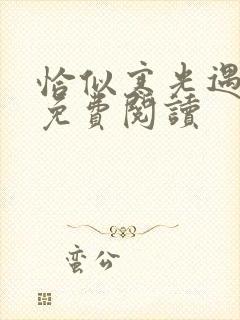 恰似寒光遇
免費閱讀
蛮公